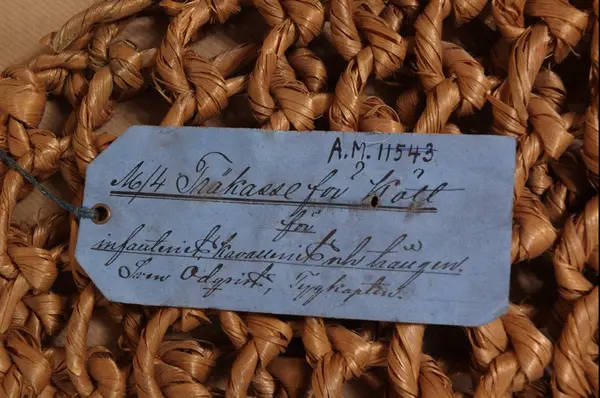 A.M. 11543
M/4 Träkasse för Kött
för
infanteriet, Kavalleriet
Sven Odqvist, Tygkapten.